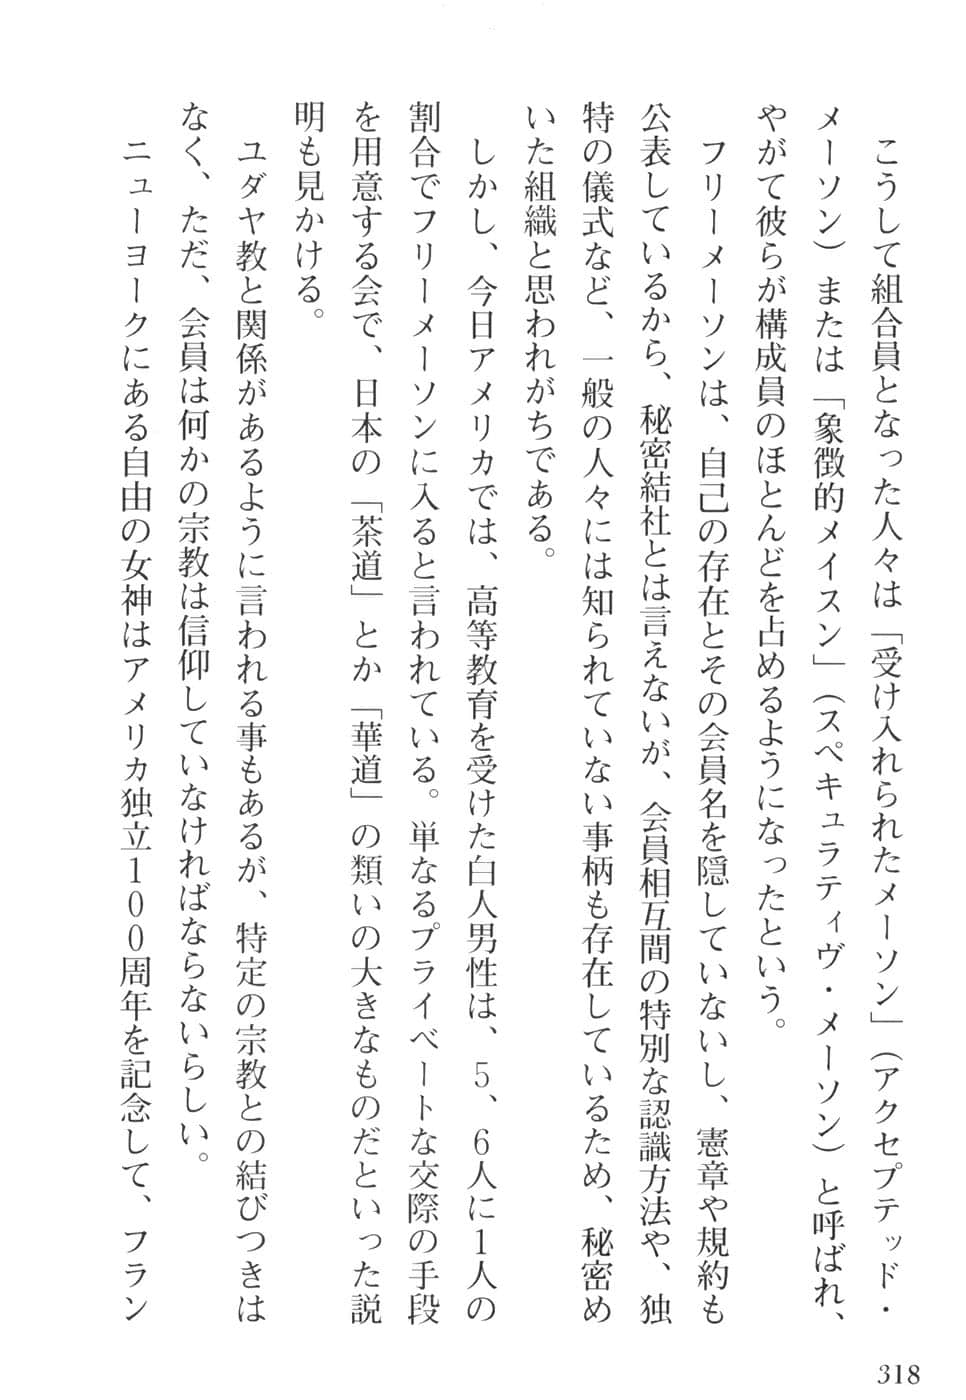 こうして組合員となった人々は「受け入れられたメーソン」（アクセプテッド・
メーソン）または「象徴的メイスン」（スペキュラティヴ・メーソン）と呼ばれ、
やがて彼らが構成員のほとんどを占めるようになったという。
フリーメーソンは、自己の存在とその会員名を隠していないし、憲章や規約も
公表しているから、秘密結社とは言えないが、会員相互間の特別な認識方法や、独
特の儀式など、一般の人々には知られていない事柄も存在しているため、秘密め
いた組織と思われがちである。
しかし、今日アメリカでは、高等教育を受けた白人男性は、5、6人に1人の
割合でフリーメーソンに入ると言われている。単なるプライベートな交際の手段
を用意する会で、日本の「茶道」とか「華道」の類いの大きなものだといった説
明も見かける。
ユダヤ教と関係があるように言われる事もあるが、特定の宗教との結びつきは
なく、ただ、会員は何かの宗教は信仰していなければならないらしい。
ニューヨークにある自由の女神はアメリカ独立100周年を記念して、フラン
318